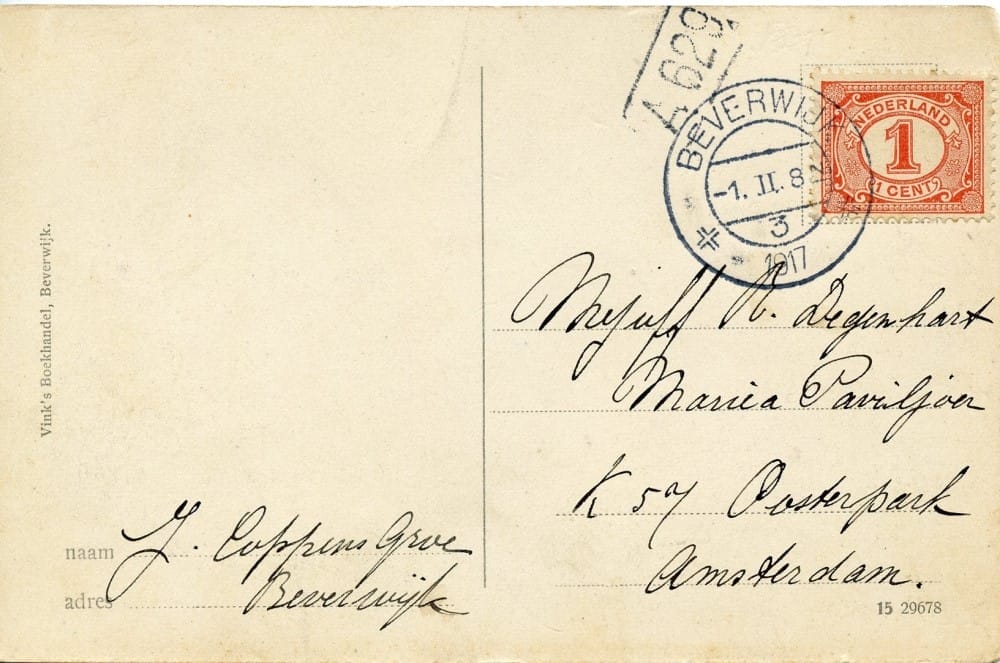 A 629
BEVERWIJK
-1. II. 8
3
1917
NEDERLAND
1
1 CENT
Vink's Boekhandel, Beverwijk.
Mejuff R. Degenhart
Maria Paviljoen
K 57 Oosterpark
Amsterdam.
naam J. Coppens Groe
adres Beverwijk
15 29678